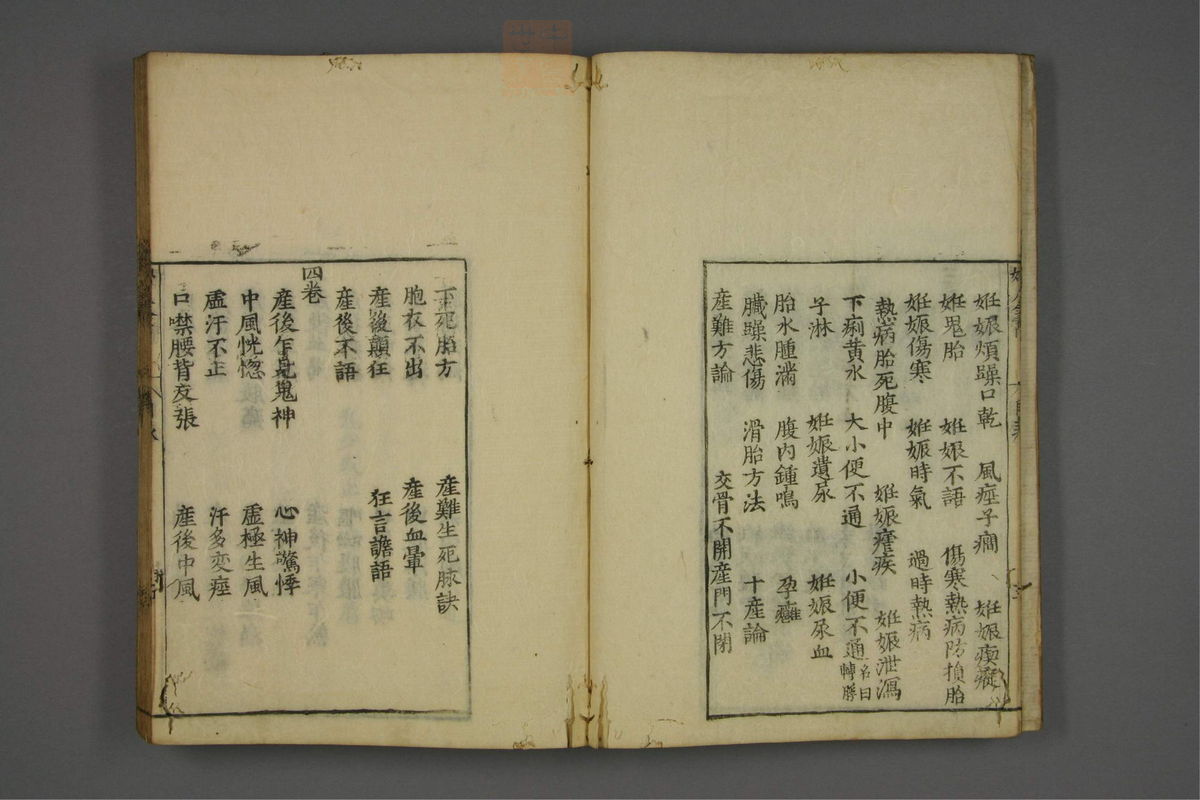 妊娠煩躁口乾　風痙子癇　妊娠瘈瘲
妊鬼胎　妊娠不語　傷寒熱病防損胎
妊娠傷寒　妊娠時氣　過時熱病
熱病胎死腹中　妊娠瘧疾　妊娠泄瀉
下痢黄水　大小便不通　小便不通名曰轉脬
子淋　妊娠遺尿　妊娠尿血
胎水腫滿　腹内鍾鳴　孕癰
臟躁悲傷　滑胎方法　十産論
産難方論　交骨不開産門不閉
下死胎方　産難生死脉訣
胞衣不出　産後血暈
産後顛狂　狂言譫語
産後不語
四卷
産後乍見鬼神　心神驚悸
中風恍惚　虚極生風
虚汗不止　汗多变痙
口噤腰背反張　産後中風